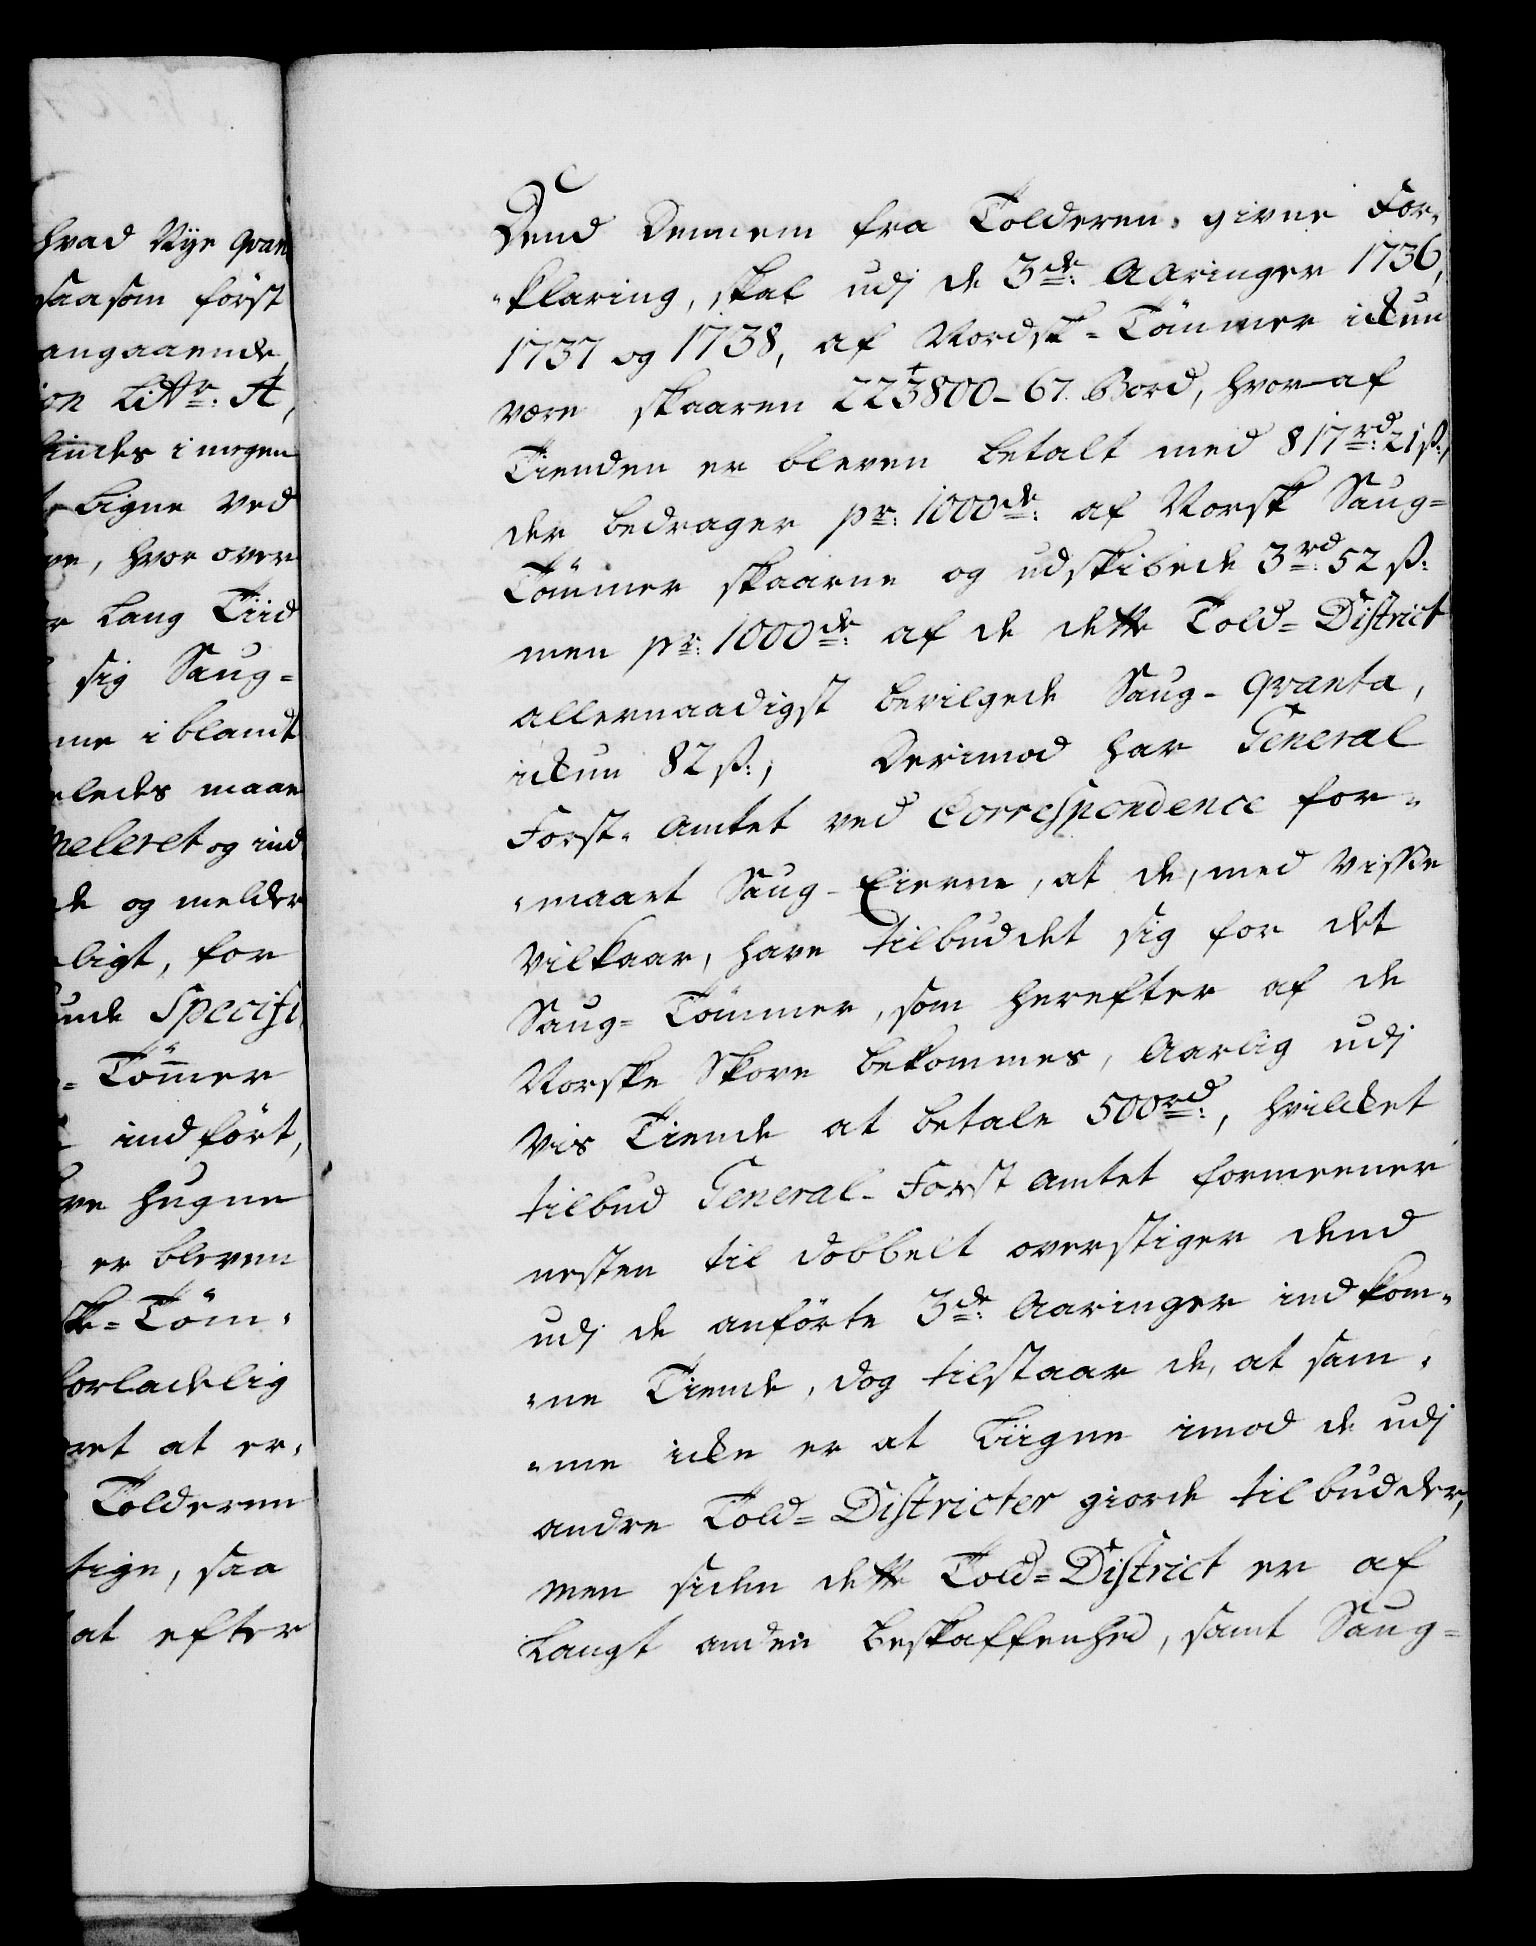 hvad Nye qvan
saasom först
angaaende,
ion Littr: A,
findes i megen
Ligne ved
ve, hvor over
r Lang Tiid
sig Saug=
me iblandt
eledes maae
meleret og ind
de og melder
ligt, for
unde Specifi
= Tömer
indført,
ve hugne
er bleven
ske=Töm=
forladelig
vet at er=
Tolderen
tige, saa
at efter
Dend Dennem fra Tolderen givne For=
=klaring, skal udj de 3de: Aaringer 1736,
1737 og 1738, af Nordsk=Tömmer ickun
være skaaren 223800-67. Bord, hvoraf
Tienden er bleven betalt med 817rd: 21ß:,
der bedrager pr: 1000de: af Norsk Saug=
Tömmer skaarne og udskibede 3rd: 52ß:
men pr: 1000de: af de dette Told=District
allernaadigst bevilgede Saug-qvanta,
ickun 82ß:, Derimod har General
Forst=Amtet ved Correspondence for=
=maaet Saug-Eierne, at de, med visse
vilkaar, have tilbuddet sig for det
Saug=Tömmer, som herefter af de
Norske Skove bekommes, Aarlig udj
vis Tiende at betale 500rd:, hvilcket
tilbud General-Forst Amtet formeener
nesten til dobbelt overstiger dend
udj de anförte 3de: Aaringer indkom=
=ne Tiende, dog tilstaar de, at sam=
=me icke er at Liigne imod de udj
andre Told=Districter giorde tilbudder,
men siden dette Told=District er af
Langt anden beskaffenhed, samt Saug=